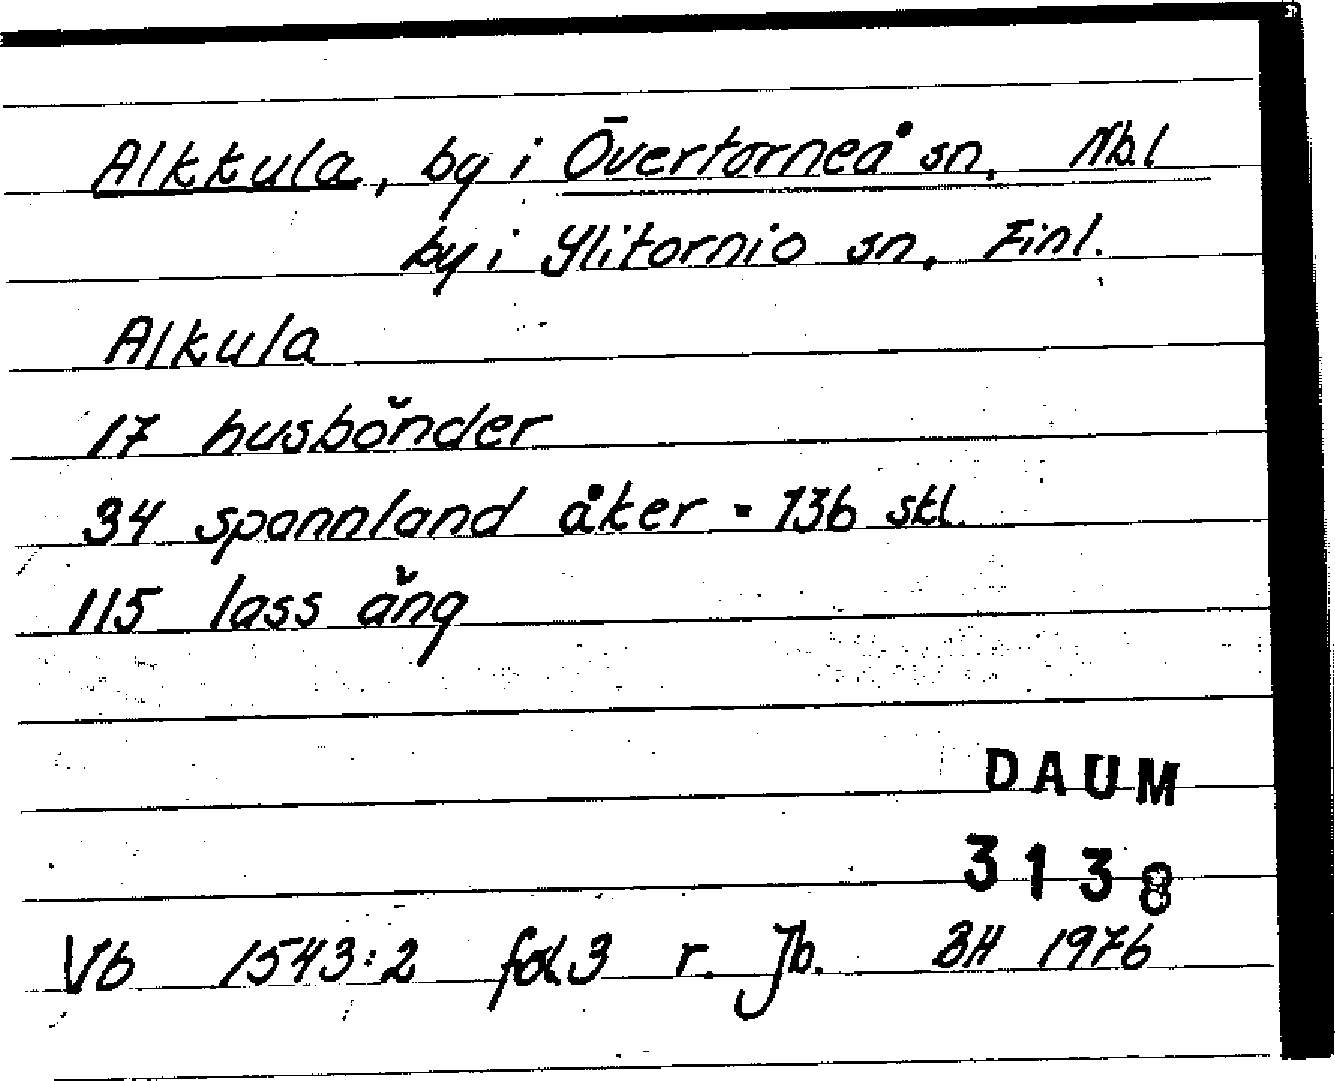 Alkkula, by i Övertorneå sn, Nb.l
by i Ylitornio sn, Finl.
Alkula
17 husbönder
34 spannland åker = 136 skl.
115 lass äng
DAUM
3138
Vb 1543:2 fol.3 r. Jb. BH 1976